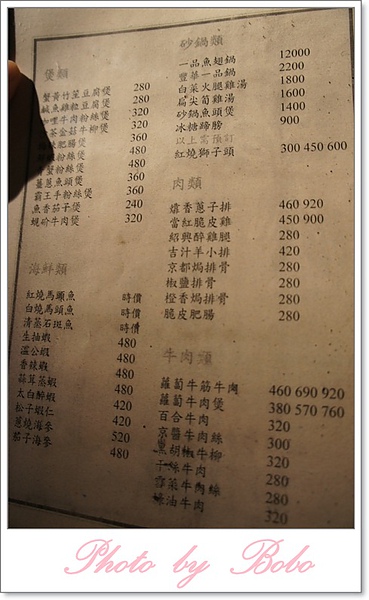 煲類
蟹黃竹笙豆腐煲 280
鹹魚雞粒豆腐煲 280
咖哩牛肉粉絲煲 320
茶金菇牛柳煲 320
肥腸煲 360
粉絲煲 480
蟹粉絲煲 480
薑蔥魚頭煲 360
霸王手粉絲煲 360
魚香茄子煲 240
蜆蚧牛肉煲 320
海鮮類
紅燒馬頭魚 時價
白燒馬頭魚 時價
清蒸石斑魚 時價
生抽蝦 480
溫公蝦 480
香辣蝦 480
蒜茸蒸蝦 480
太白醉蝦 420
松子蝦仁 420
蔥燒海參 520
茄子海參 480
砂鍋類
一品魚翅鍋 12000
豐華一品鍋 2200
白菜火腿雞湯 1800
扁尖筍雞湯 1600
砂鍋魚頭湯 1400
冰糖蹄膀 900
以上需預訂
紅燒獅子頭 300 450 600
肉類
蔥子排 460 920
當紅脆皮雞 450 900
紹興醉雞腿 280
吉汁羊小排 420
京都焗排骨 280
椒鹽排骨 280
橙香焗排骨 280
脆皮肥腸 280
牛肉類
蘿蔔牛筋牛肉 460 690 920
蘿蔔牛肉煲 380 570 760
百合牛肉 320
京醬牛肉絲 300
黑胡椒牛柳 320
子絲牛肉 280
菜牛肉絲 280
蠔油牛肉 320
Photo by Bobo